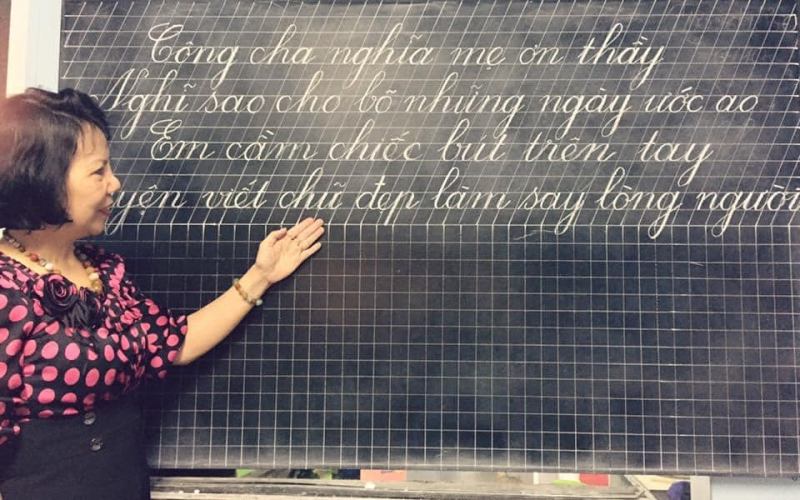 Công cha nghĩa mẹ ơn thầy
Nghĩ sao cho bõ những ngày ước ao
Em cầm chiếc bút trên tay
viết chữ đẹp làm say lòng người